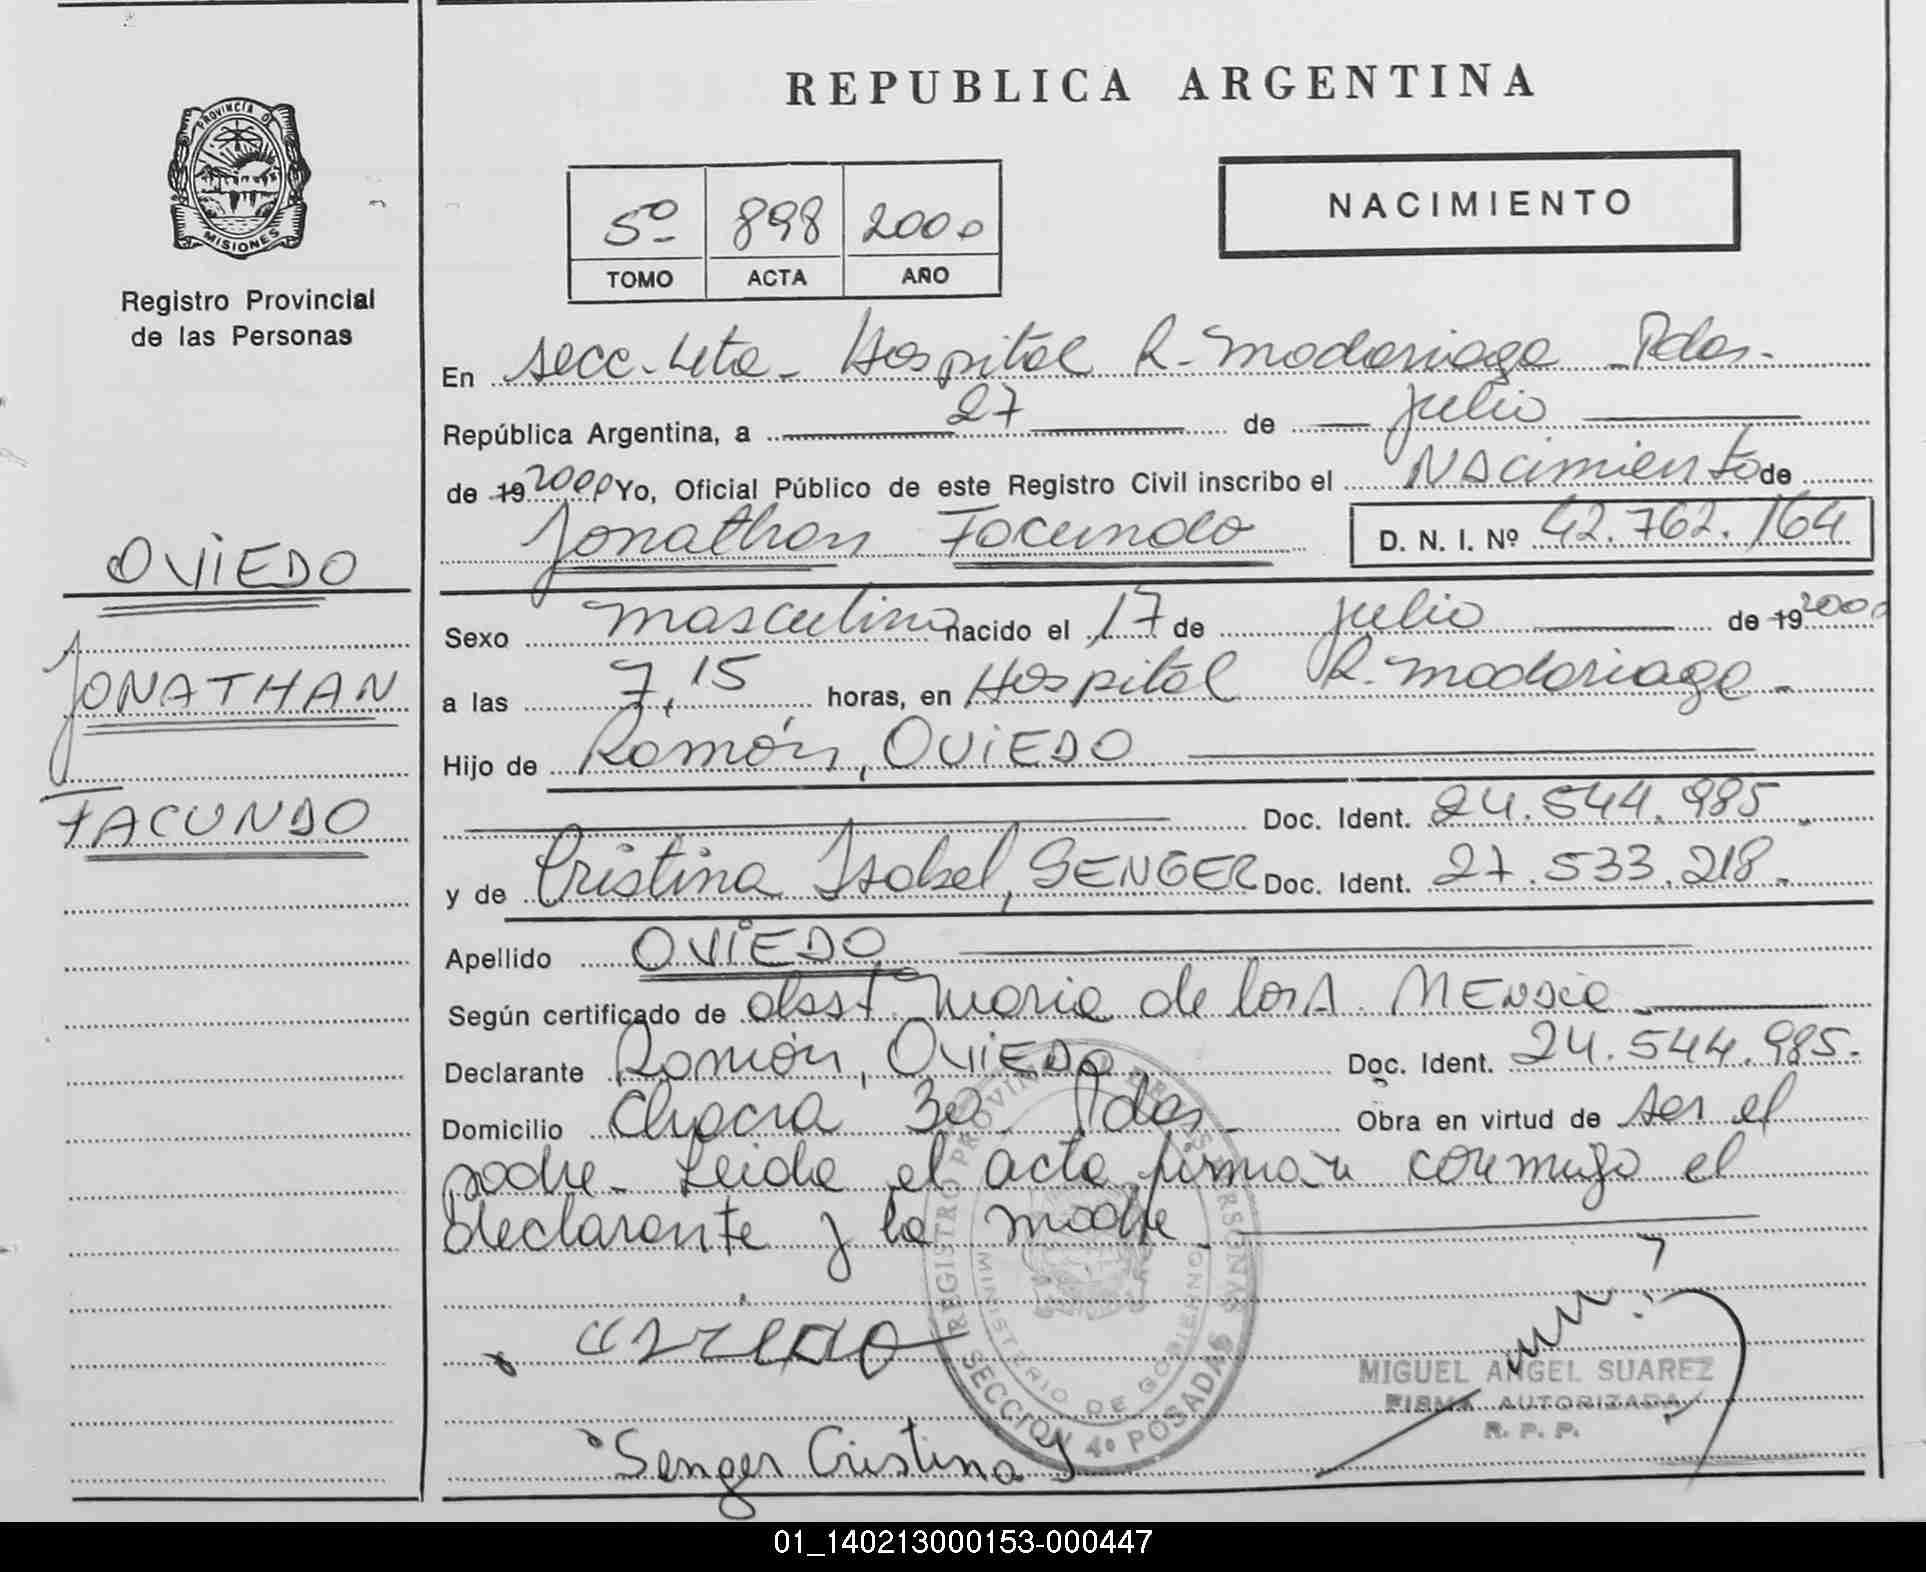 REPUBLICA ARGENTINA
PROVINCIA DE
MISIONES
Registro Provincial
de las Personas
5º 898 2000
TOMO ACTA AÑO
NACIMIENTO
En secc. 4ta - Hospital R. Madariaga - Pdas.
República Argentina, a 27 de julio
de 19 2000 Yo, Oficial Público de este Registro Civil inscribo el Nacimiento de
Jonathan Facundo D. N. I. Nº 42.762.164
OVIEDO
JONATHAN
FACUNDO
Sexo masculino nacido el 17 de julio de 19 2000
a las 7,15 horas, en Hospital R. Madariaga -
Hijo de Ramón, OVIEDO
Doc. Ident. 24.544.985
y de Cristina Isabel, SENGER Doc. Ident. 27.533.218.
Apellido OVIEDO
Según certificado de obst Maria de los A.
Declarante Ramón, OVIEDO Doc. Ident. 24.544.985.
Domicilio Chacra 30 Pdas. Obra en virtud de ser el
padre - Leida el acta firman conmigo el
declarante y la madre.
REGISTRO PROVINCIAL DE LAS PERSONAS
MINISTERIO DE GOBIERNO
SECCION 4º POSADAS
MIGUEL ANGEL SUAREZ
FIRMA AUTORIZADA
R. P. P.
Senger Cristina I
01_140213000153-000447